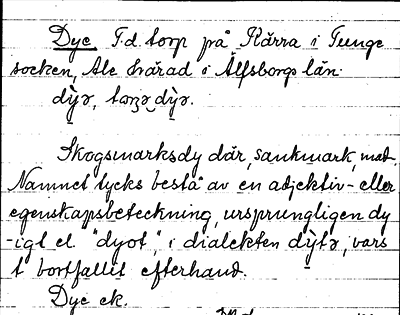 Dye T.d. torp på Kärra i Tunge
socken, Ale härad i Älfsborgs län.
dỳə, tɷrpə dỳə.
Skogsmarksdy där, sankmark, mad.
Namnet tycks bestå av en adjektiv- eller
egenskapsbeteckning, ursprungligen dy
-igt el. "dyot", i dialekten dỳtə, vars
t bortfallit efterhand.
Dye ek.